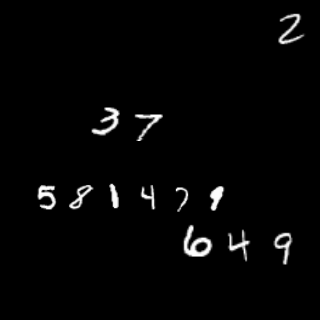 2
37
581479
649